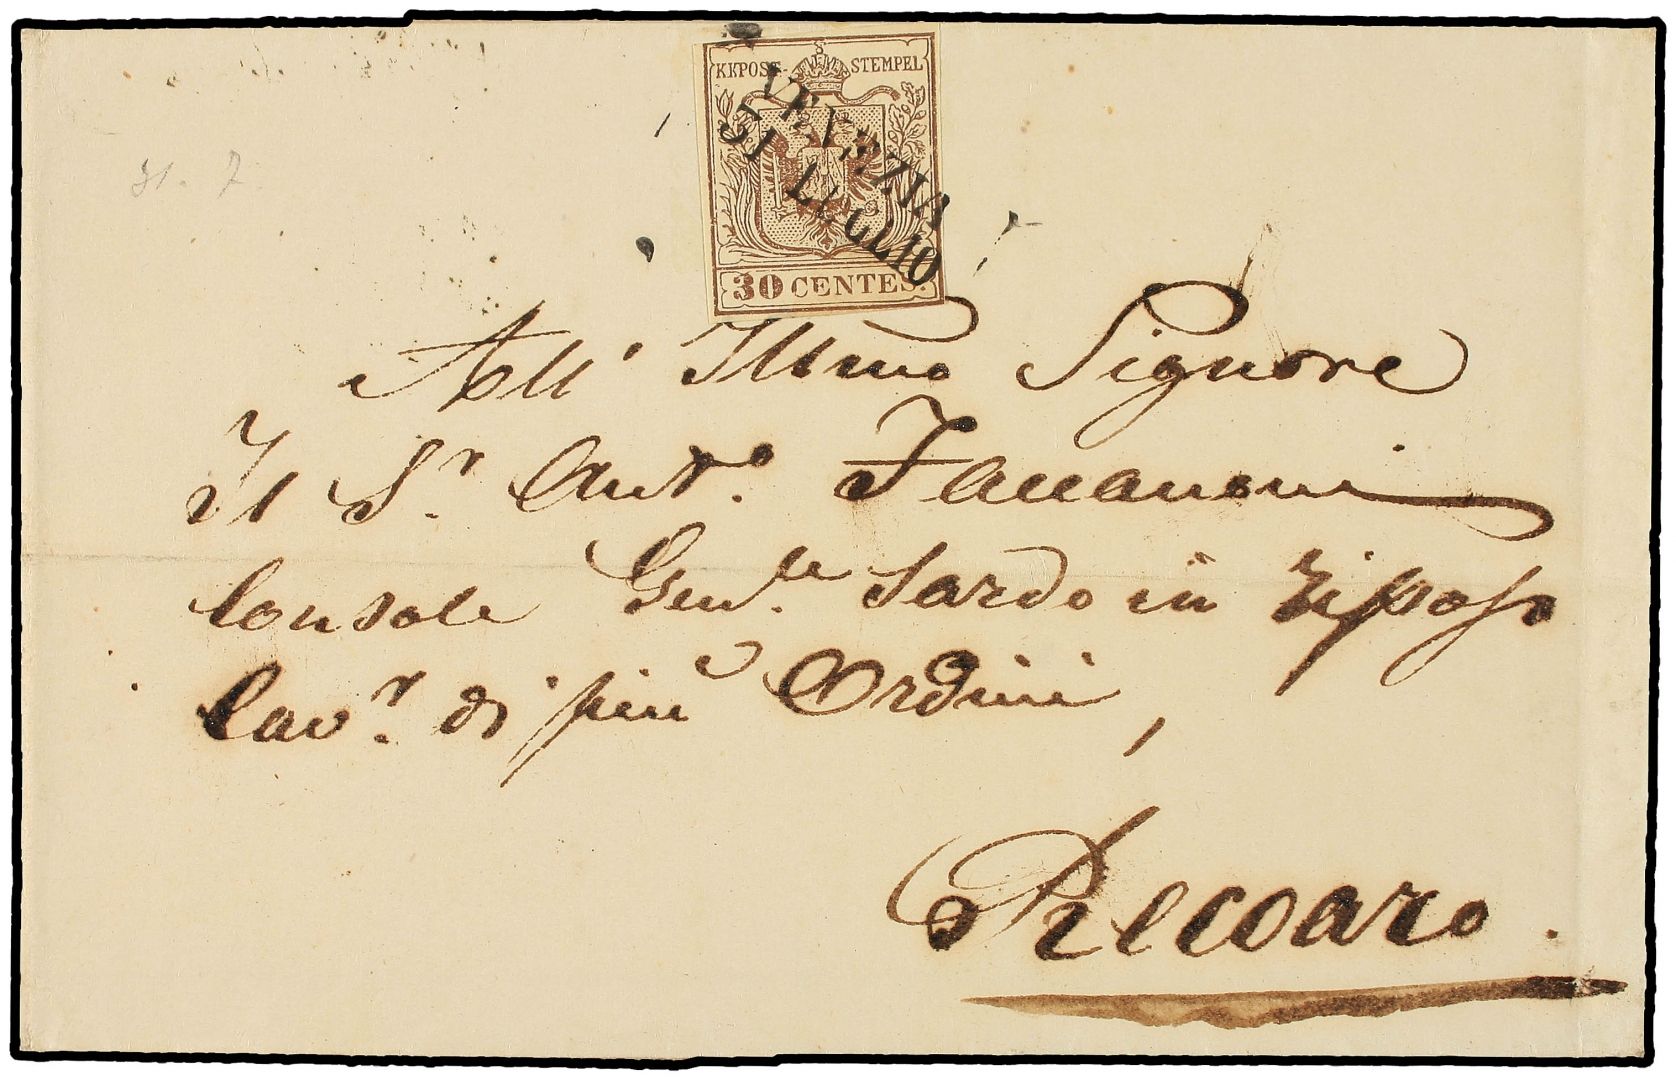 KKPOST-STEMPEL
VENEZIA
31 LUGLIO
30 CENTES.
31. 7
All' Illmo Signore
Il Sr. Anto. Faccanoni
Console Genle. Sardo in riposo
Cavr. di più Ordini,
Recoaro.